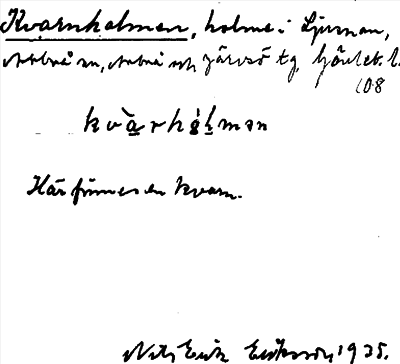 Kvarnholmen, holme i Ljusnan,
Arbrå sn, Arbrå och Järvsö tg, Gävleb. l.
108
kvàrhólmən
Här finnes en kvarn.
Nils Erik Eriksson 1935.